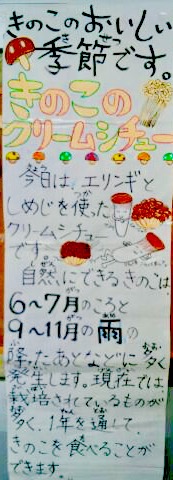 きのこのおいしい
季節です。
きのこの
クリームシチュー
今日は、エリンギと
しめじを使った
クリームシチュー
です。
自然にできるきのこは、
6～7月のころと
9～11月の雨の
降ったあとなどに多く
発生します。現在では、
栽培されているものが
多く、1年を通して、
きのこを食べることが
できます。